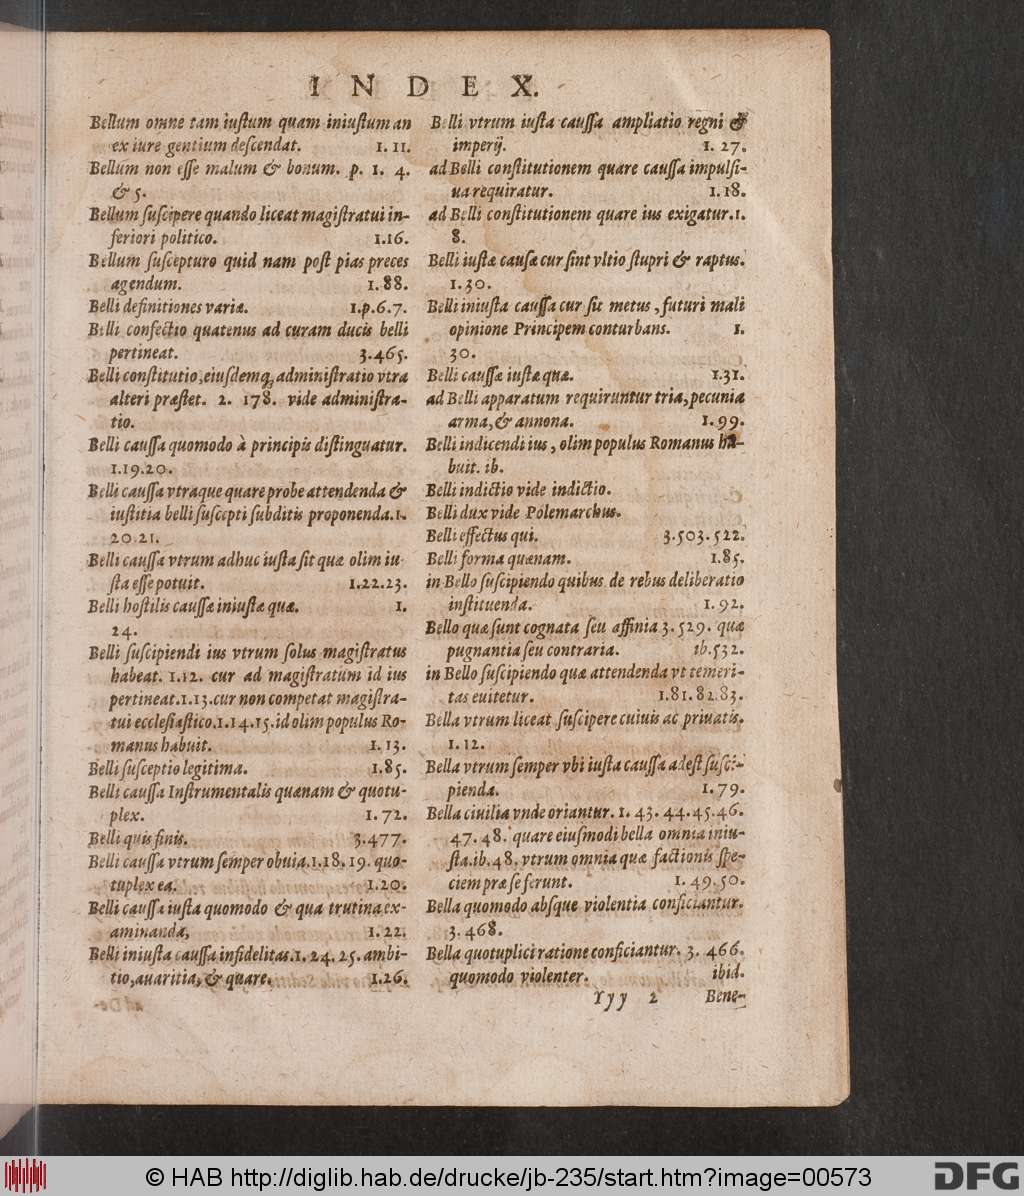 INDEX.
Bellum omne tam iuſtum quam iniuſtum an
ex iure gentium deſcendat. 1. 11.
Bellum non eſſe malum & bonum. p. 1. 4.
& 5.
Bellum ſuſcipere quando liceat magiſtratui in-
feriori politico. 1.16.
Bellum ſuſcepturo quid nam poſt pias preces
agendum. 1.88.
Belli definitiones variæ. 1.p.6.7.
Belli confectio quatenus ad curam ducis belli
pertineat. 3.465.
Belli conſtitutio, eiuſdemq; adminiſtratio vtra
alteri præſtet. 2. 178. vide adminiſtra-
tio.
Belli cauſſa quomodo à principiis diſtinguatur.
1.19.20.
Belli cauſſa vtraque quare probe attendenda &
iuſtitia belli ſuſcepti ſubditis proponenda.1.
20.21.
Belli cauſſa vtrum adhuc iuſta ſit quæ olim iu-
ſta eſſe potuit. 1.22.23.
Belli hoſtilis cauſſæ iniuſtæ quæ. 1.
24.
Belli ſuſcipiendi ius vtrum ſolus magiſtratus
habeat. 1.12. cur ad magiſtratum id ius
pertineat.1.13.cur non competat magiſtra-
tui eccleſiaſtico.1.14.15.id olim populus Ro-
manus habuit. 1.13.
Belli ſuſceptio legitima. 1.85.
Belli cauſſa Inſtrumentalis quænam & quotu-
plex. 1.72.
Belli quis finis. 3.477.
Belli cauſſa vtrum ſemper obuia.1.18.19. quo-
tuplex ea. 1.20.
Belli cauſſa iuſta quomodo & qua trutina ex-
aminanda, 1.22.
Belli iniuſta cauſſa infidelitas.1.24.25. ambi-
tio, auaritia, & quare. 1.26.
Belli vtrum iuſta cauſſa ampliatio regni &
imperij. 1. 27.
ad Belli conſtitutionem quare cauſſa impulſi-
ua requiratur. 1.18.
ad Belli conſtitutionem quare ius exigatur.1.
8.
Belli iuſtæ cauſæ cur ſint vltio ſtupri & raptus.
1.30.
Belli iniuſta cauſſa cur ſit metus, futuri mali
opinione Principem conturbans. 1.
30.
Belli cauſſæ iuſtæ quæ. 1.31.
ad Belli apparatum requiruntur tria, pecunia
arma, & annona. 1.99.
Belli indicendi ius, olim populus Romanus ha-
buit. ib.
Belli indictio vide indictio.
Belli dux vide Polemarchus.
Belli effectus qui. 3.503.522.
Belli forma quænam. 1.85.
in Bello ſuſcipiendo quibus de rebus deliberatio
inſtituenda. 1.92.
Bello quæ ſunt cognata ſeu affinia 3.529. quæ
pugnantia ſeu contraria. ib.532.
in Bello ſuſcipiendo quæ attendenda vt temeri-
tas euitetur. 1.81.82.83.
Bella vtrum liceat ſuſcipere cuiuis ac priuatis.
1.12.
Bella vtrum ſemper vbi iuſta cauſſa adeſt ſuſci-
pienda. 1.79.
Bella ciuilia vnde oriantur. 1. 43. 44.45.46.
47.48. quare eiuſmodi bella omnia iniu-
ſta.ib.48. vtrum omnia quæ factionis ſpe-
ciem præ ſe ferunt. 1. 49.50.
Bella quomodo abſque violentia conficiantur.
3.468.
Bella quotuplici ratione conficiantur. 3. 466.
quomodo violenter. ibid.
Yyy 2 Bene-
© HAB http://diglib.hab.de/drucke/jb-235/start.htm?image=00573
DFG